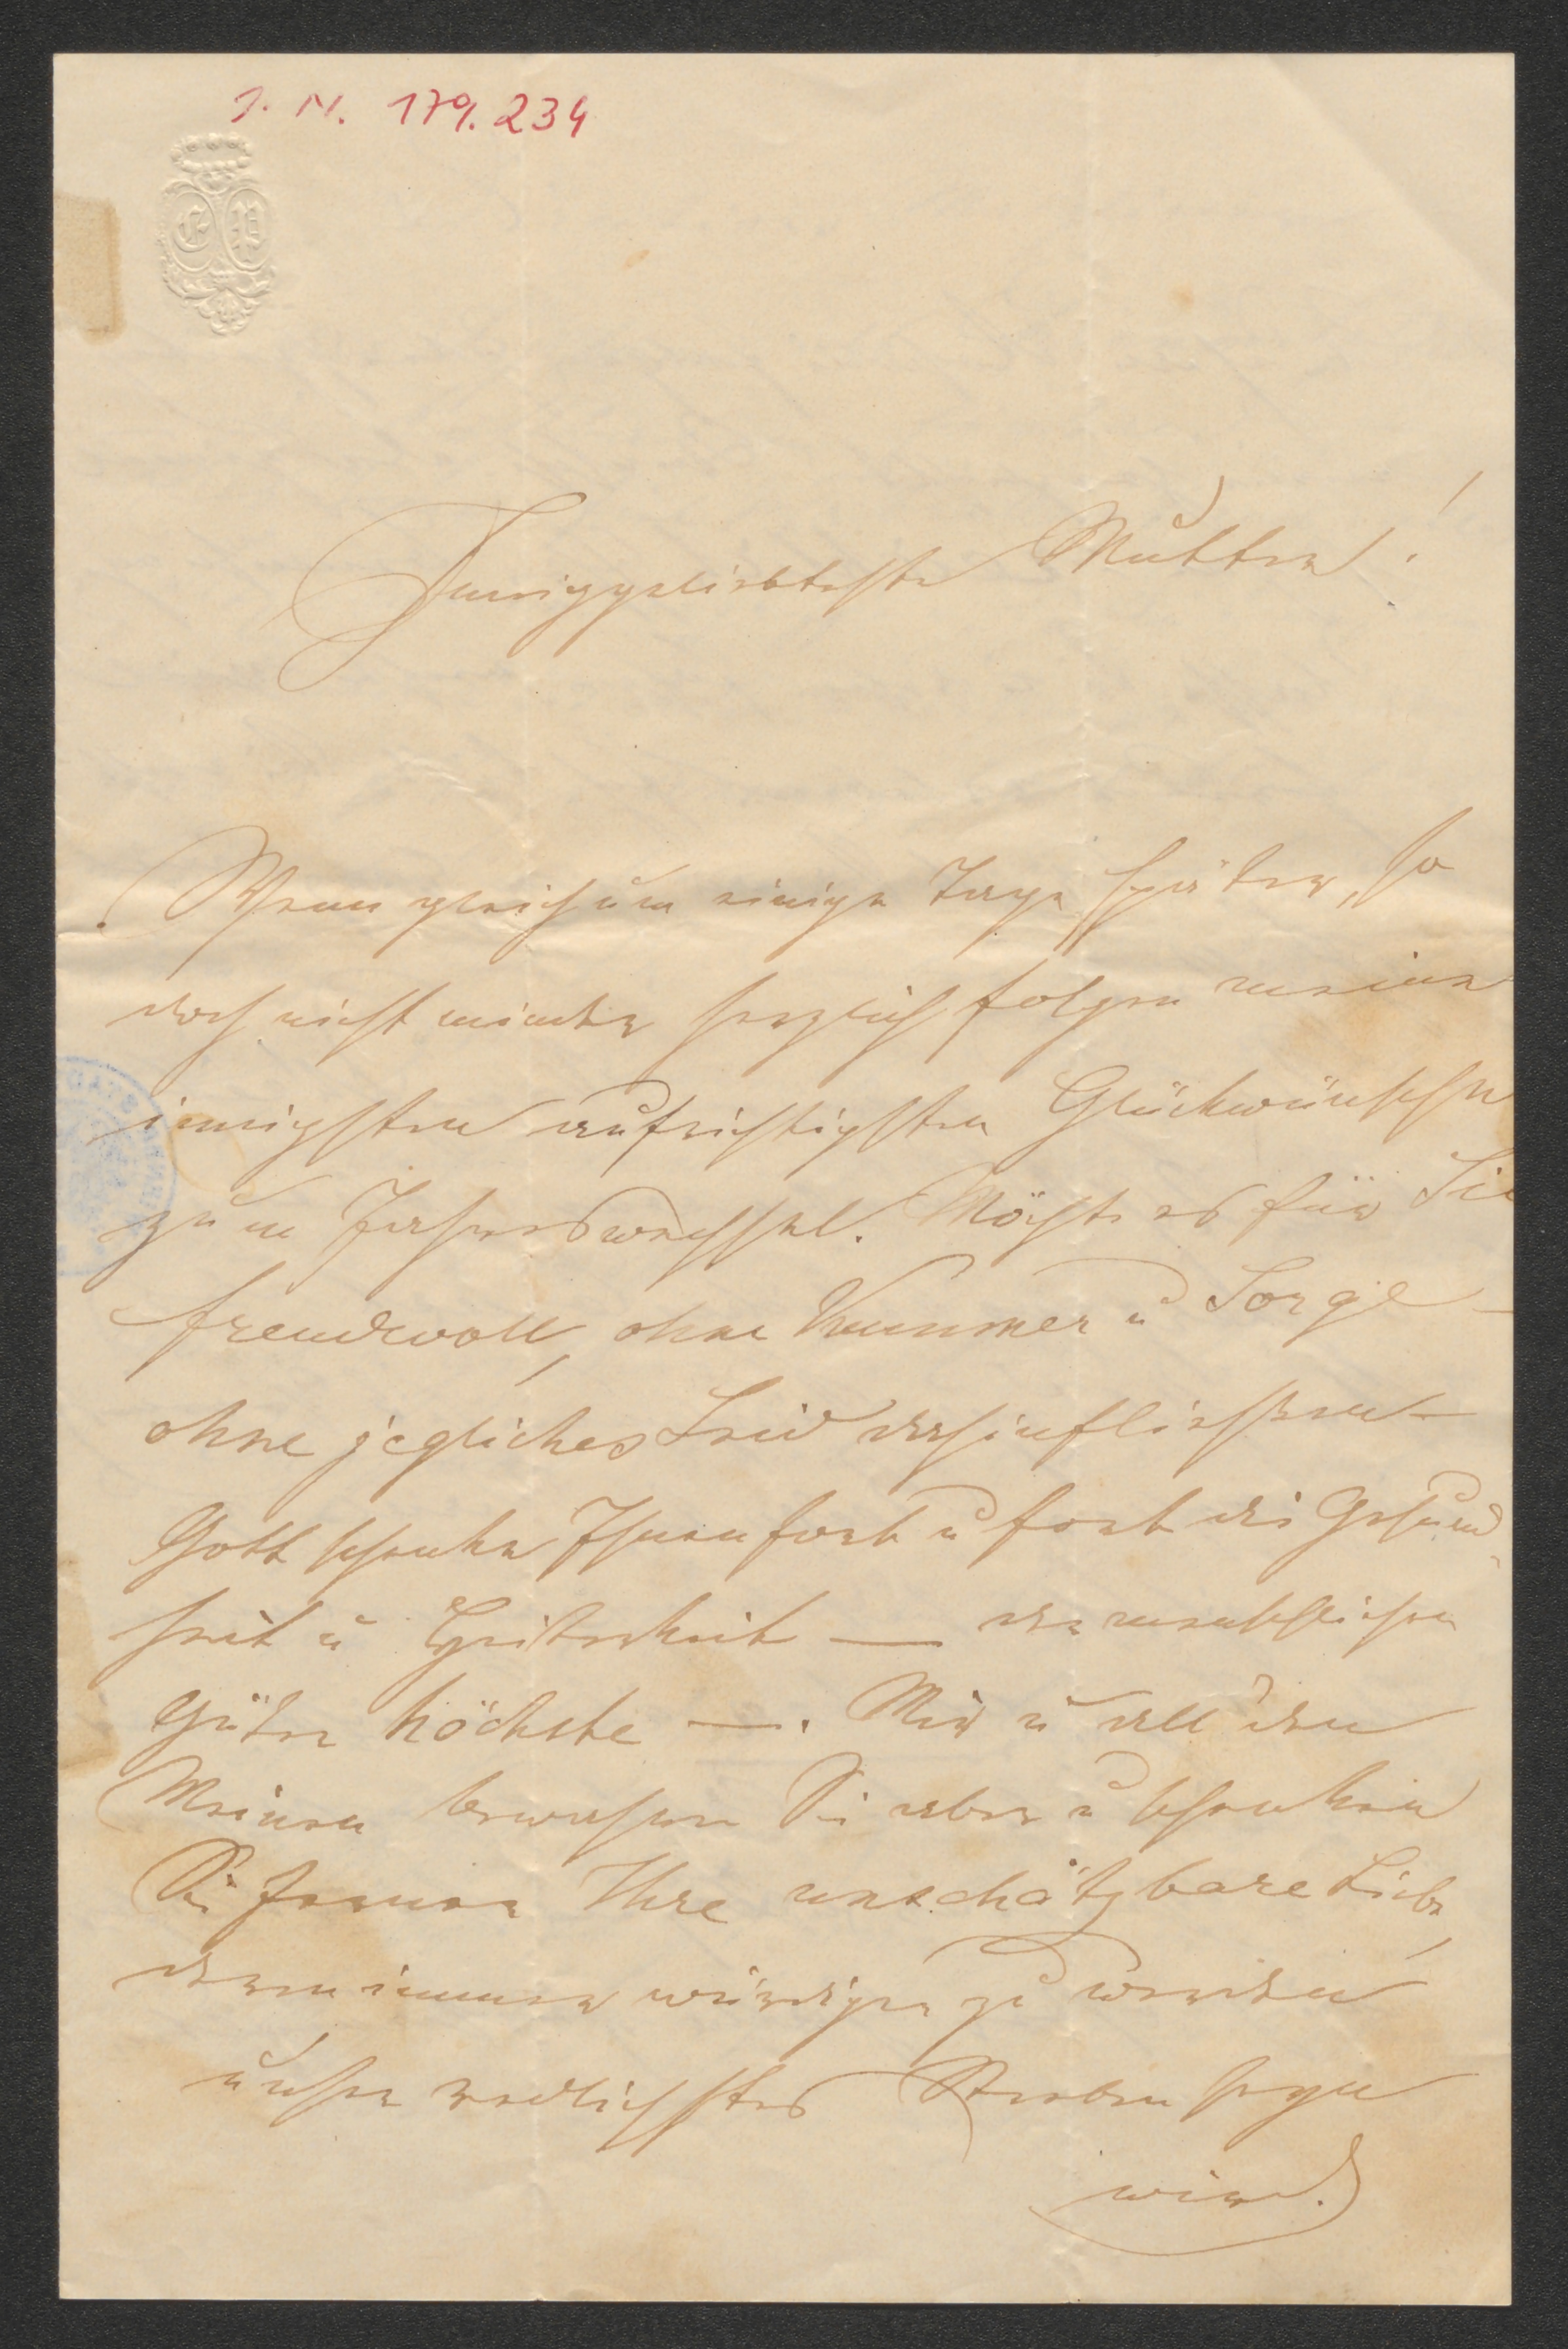 I. N. 179.234
E P
Inniggeliebteste Mutter!
Wenn gleich um einige Tage später, so
doch nicht minder herzlich folgen meine
innigsten aufrichtigsten Glückwünsche
zum Jahreswechsel. Möchte es für Sie
freudvoll, ohne Kummer u Sorge –
ohne jegliches Leid dahinfließen –
Gott schenke Ihnen fort u fort die Gesund
heit u Heiterkeit — der menschlichen
Güter höchste —. Mir u all' den
Meinen bewahren Sie aber u schenken
Sie ferner Ihre unschätzbare Liebe,
deren immer würdiger zu werden
unser redlichstes Streben seyn
wird.